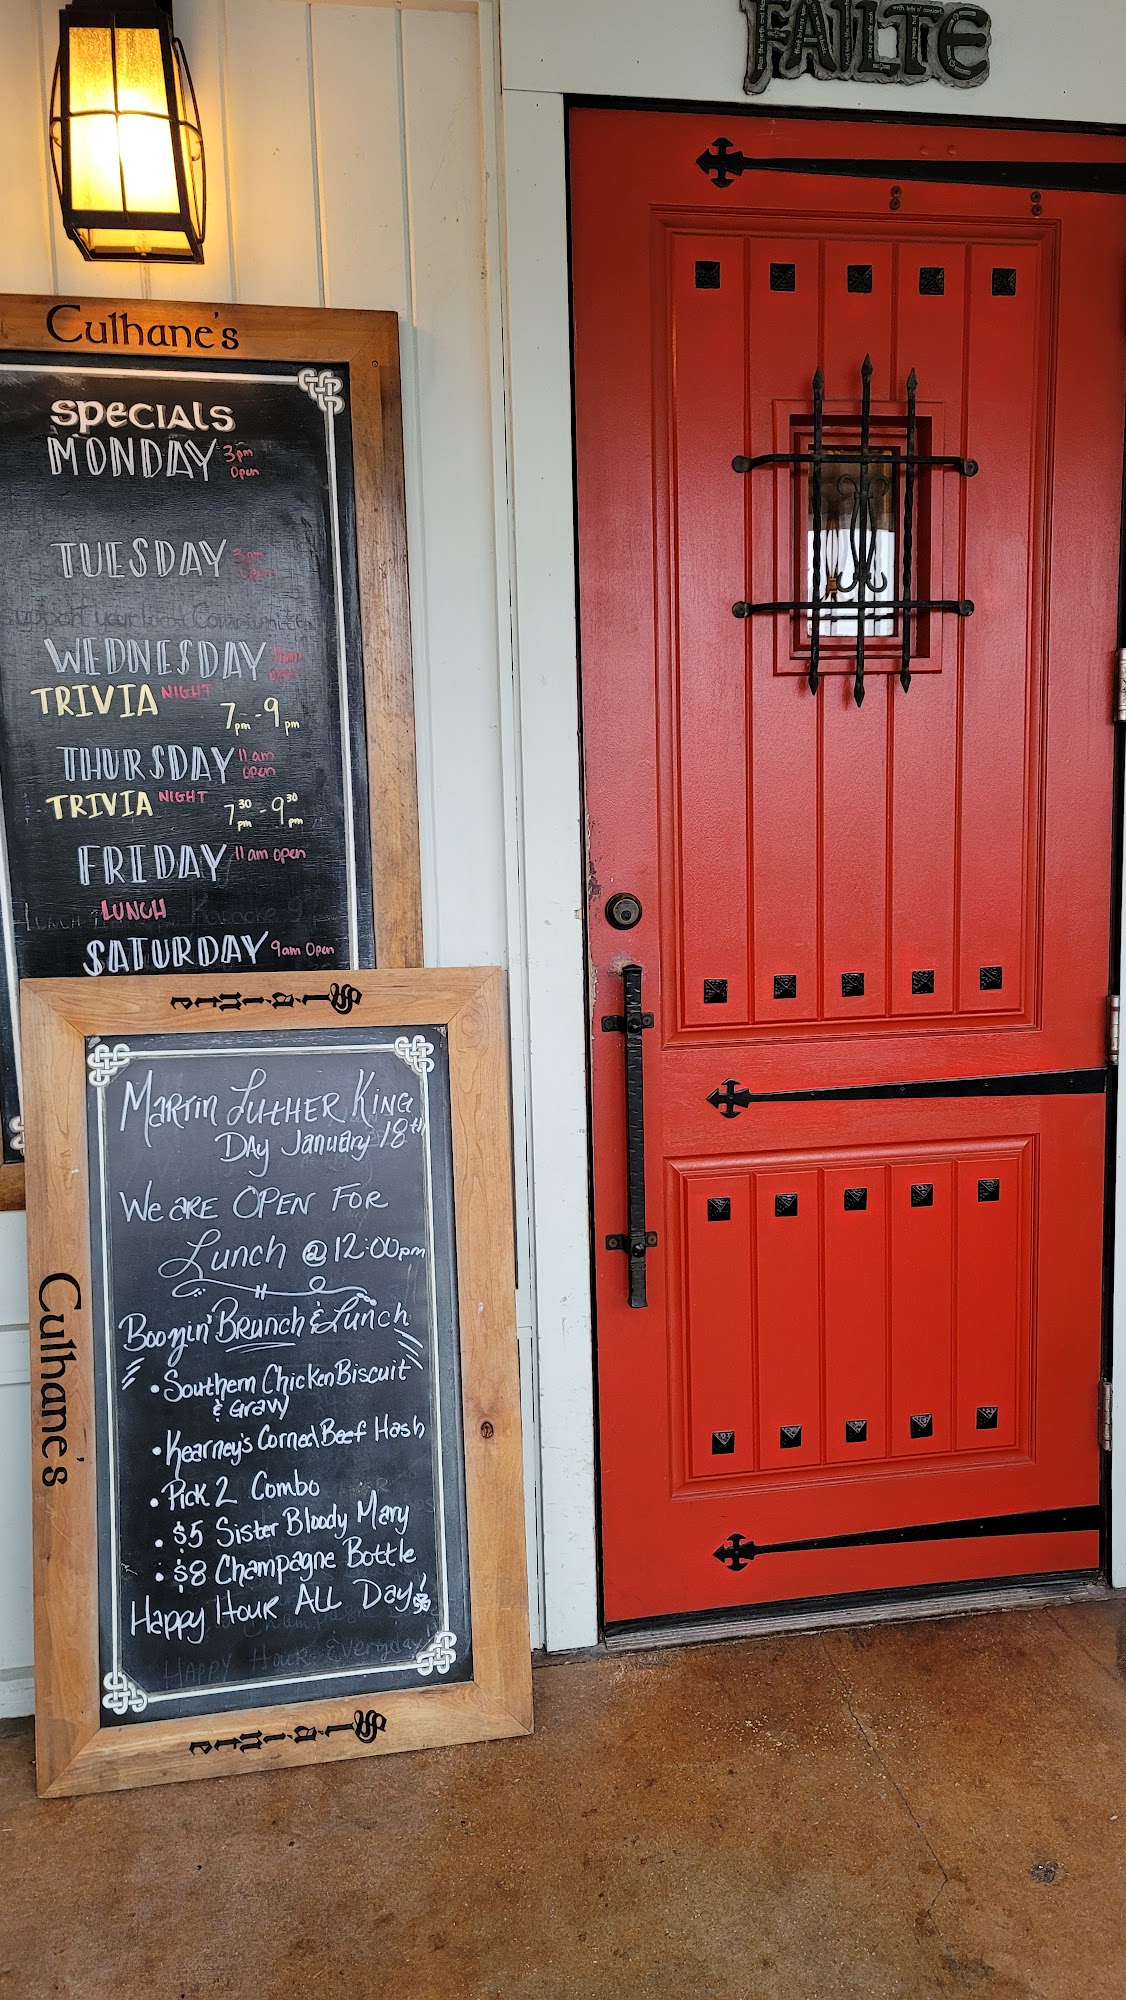 FAILTE
Culhane's
SPECIALS
MONDAY 3pm
Open
TUESDAY 3pm
Open
Support your Local Communities
WEDNESDAY
TRIVIA NIGHT
7pm - 9pm
THURSDAY 11am
open
TRIVIA NIGHT
7:30pm - 9:30pm
FRIDAY 11am open
LUNCH
Karaoke 9
SATURDAY 9am Open
Martin Luther King
Day January 18th
We are OPEN FOR
Lunch @ 12:00pm
Boozin' Brunch & Lunch
• Southern Chicken Biscuit
& Gravy
• Kearney's Corned Beef Hash
• Pick 2 Combo
• $5 Sister Bloody Mary
• $8 Champagne Bottle
Happy Hour ALL Day!
Happy Hour Everyday!
Culhane's